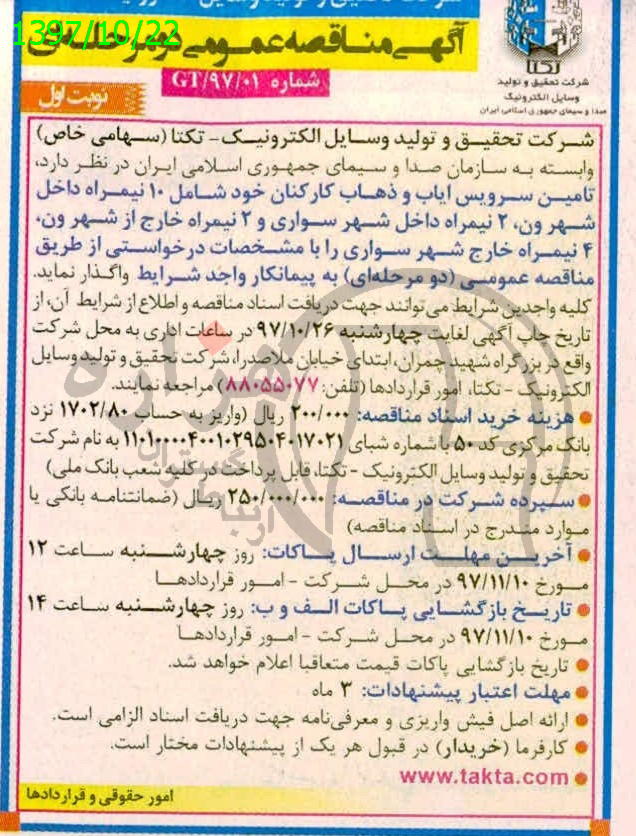 1397/10/22
آگهی مناقصه عمومی دو مرحله‌ای
شماره GT/۹۷/۰۱
نوبت اول
تکتا
شرکت تحقیق و تولید
وسایل الکترونیک
صدا و سیمای جمهوری اسلامی ایران
شرکت تحقیق و تولید وسایل الکترونیک - تکتا (سهامی خاص)
وابسته به سازمان صدا و سیمای جمهوری اسلامی ایران در نظر دارد،
تامین سرویس ایاب و ذهاب کارکنان خود شامل ۱۰ نیمراه داخل
شهر ون، ۲ نیمراه داخل شهر سواری و ۲ نیمراه خارج از شهر ون،
۴ نیمراه خارج شهر سواری را با مشخصات درخواستی از طریق
مناقصه عمومی (دو مرحله‌ای) به پیمانکار واجد شرایط واگذار نماید.
کلیه واجدین شرایط می‌توانند جهت دریافت اسناد مناقصه و اطلاع از شرایط آن، از
تاریخ چاپ آگهی لغایت چهارشنبه ۹۷/۱۰/۲۶ در ساعات اداری به محل شرکت
واقع در بزرگراه شهید چمران، ابتدای خیابان ملاصدرا، شرکت تحقیق و تولید وسایل
الکترونیک - تکتا، امور قراردادها (تلفن: ۸۸۰۵۵۰۷۷) مراجعه نمایند.
● هزینه خرید اسناد مناقصه: ۲۰۰/۰۰۰ ریال (واریز به حساب ۱۷۰۲/۸۰ نزد
بانک مرکزی کد ۵۰ با شماره شبای ۱۱۰۱۰۰۰۰۴۰۰۱۰۲۹۵۰۴۰۱۷۰۲۱ به نام شرکت
تحقیق و تولید وسایل الکترونیک - تکتا، قابل پرداخت در کلیه شعب بانک ملی)
● سپرده شرکت در مناقصه: ۲۵۰/۰۰۰/۰۰۰ ریال (ضمانتنامه بانکی یا
موارد مندرج در اسناد مناقصه)
● آخرین مهلت ارسال پاکات: روز چهارشنبه ساعت ۱۲
مورخ ۹۷/۱۱/۱۰ در محل شرکت - امور قراردادها
● تاریخ بازگشایی پاکات الف و ب: روز چهارشنبه ساعت ۱۴
مورخ ۹۷/۱۱/۱۰ در محل شرکت - امور قراردادها
● تاریخ بازگشایی پاکات قیمت متعاقبا اعلام خواهد شد.
● مهلت اعتبار پیشنهادات: ۳ ماه
● ارائه اصل فیش واریزی و معرفی‌نامه جهت دریافت اسناد الزامی است.
● کارفرما (خریدار) در قبول هر یک از پیشنهادات مختار است.
● www.takta.com
امور حقوقی و قراردادها